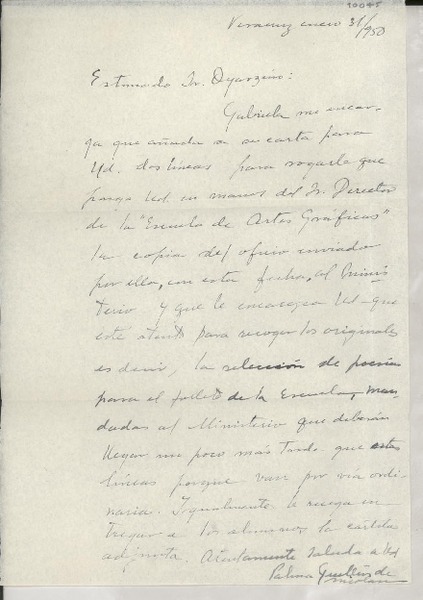 Veracruz enero 31/950
Estimado Sr. Oyarzún:
Gabriela me encar-
ga que añada a su carta para
Ud. dos líneas para rogarle que
ponga Ud en manos del Sr. Director
de la "Escuela de Artes Gráficas"
la copia del oficio enviado
por ella, con esta fecha, al Minis
terio y que le encarezca Ud que
esté atento para recoger los originales
es decir, la selección de poesía
para el folleto de la Escuela, man-
dadas al Ministerio que deberán
llegar un poco más tarde que estas
líneas porque van por vía ordi-
naria. Igualmente le ruega en
tregar a los alumnos la cartita
adjunta. Atentamente saluda a Ud
Palma Guillén de
Nicolau